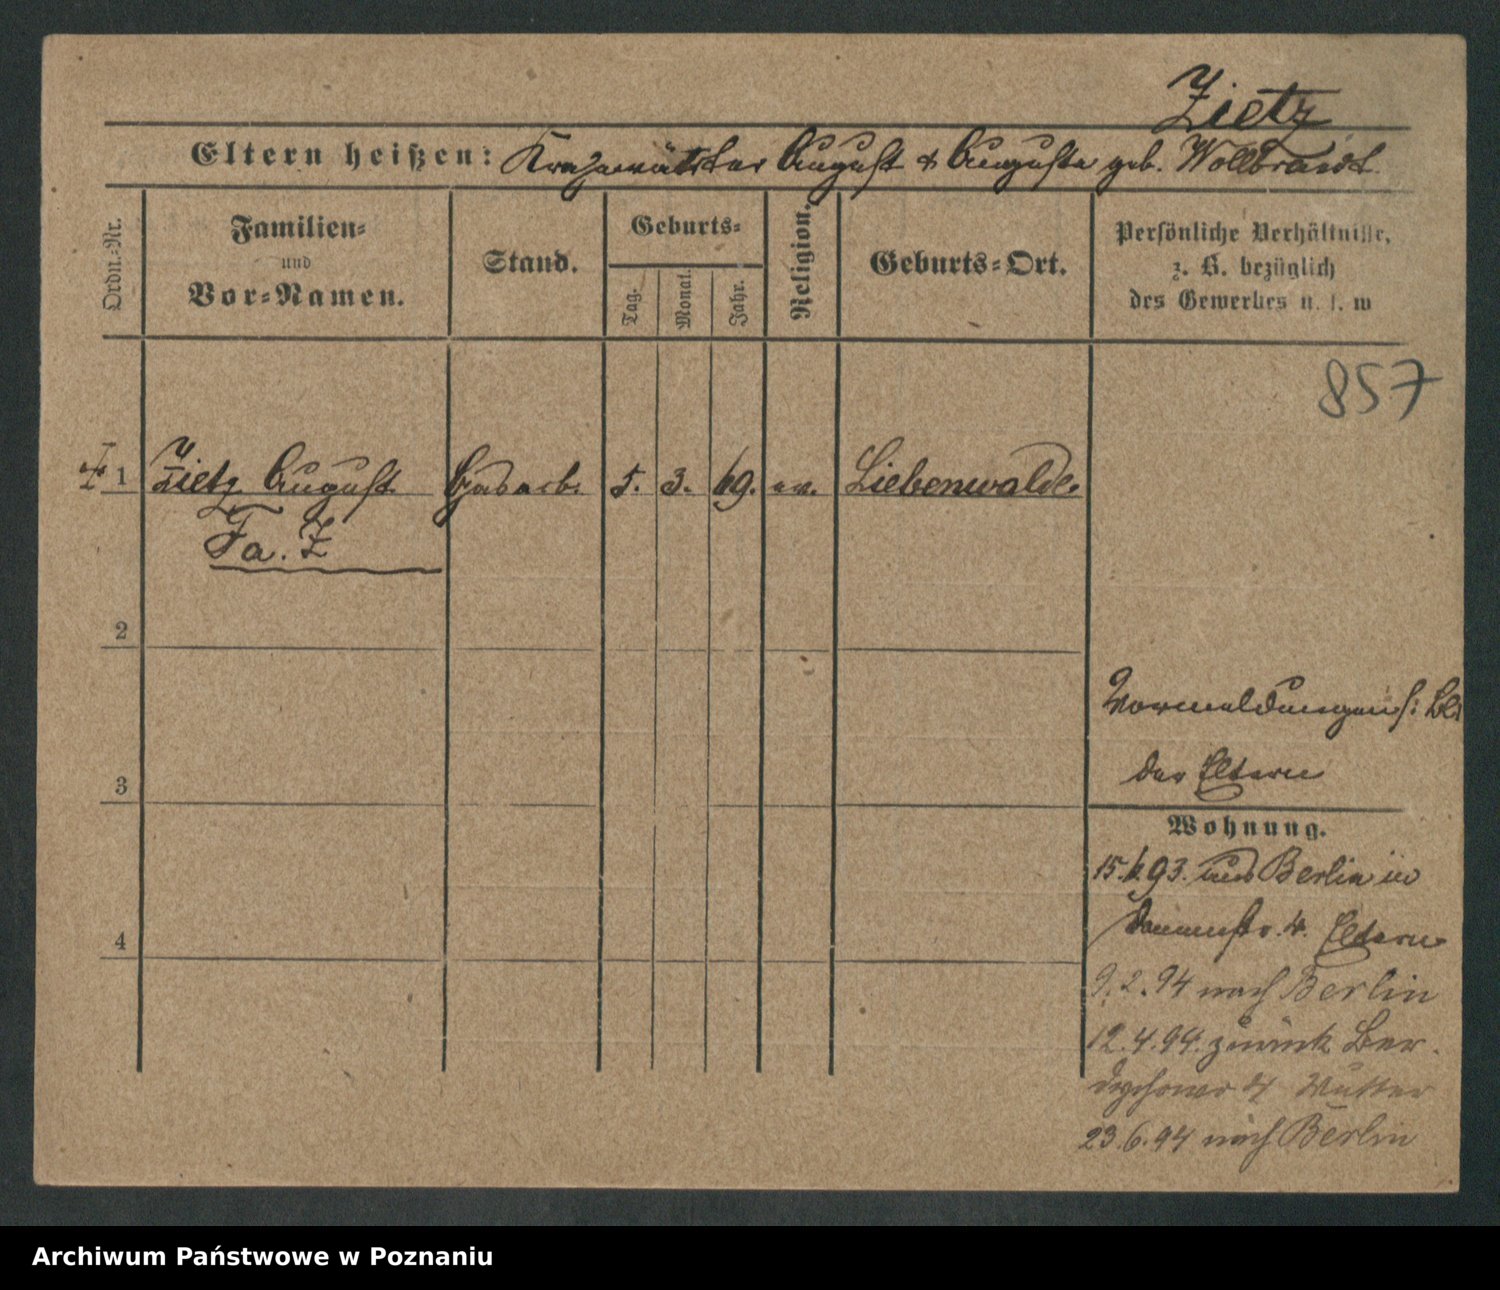 Zietz
Eltern heißen: August & Auguste geb. Wollbrandt
Ordn.-Nr.
Familien-
und
Vor-Namen.
Stand.
Geburts-
Tag.
Monat.
Jahr.
Religion.
Geburts-Ort.
Persönliche Verhältnisse,
z. B. bezüglich
des Gewerbes u. s. w
857
1 Zietz August 5. 3. 69. ev. Liebenwalde.
Fa. Z
2
3
4
Vormeldungen s:
der Eltern
Wohnung.
15. 6. 93. aus Berlin in
4. Eltern
9. 2. 94 nach Berlin
12. 4. 94. zurück Ber
dychowo 4 Mutter
23. 6. 94 nach Berlin
Archiwum Państwowe w Poznaniu